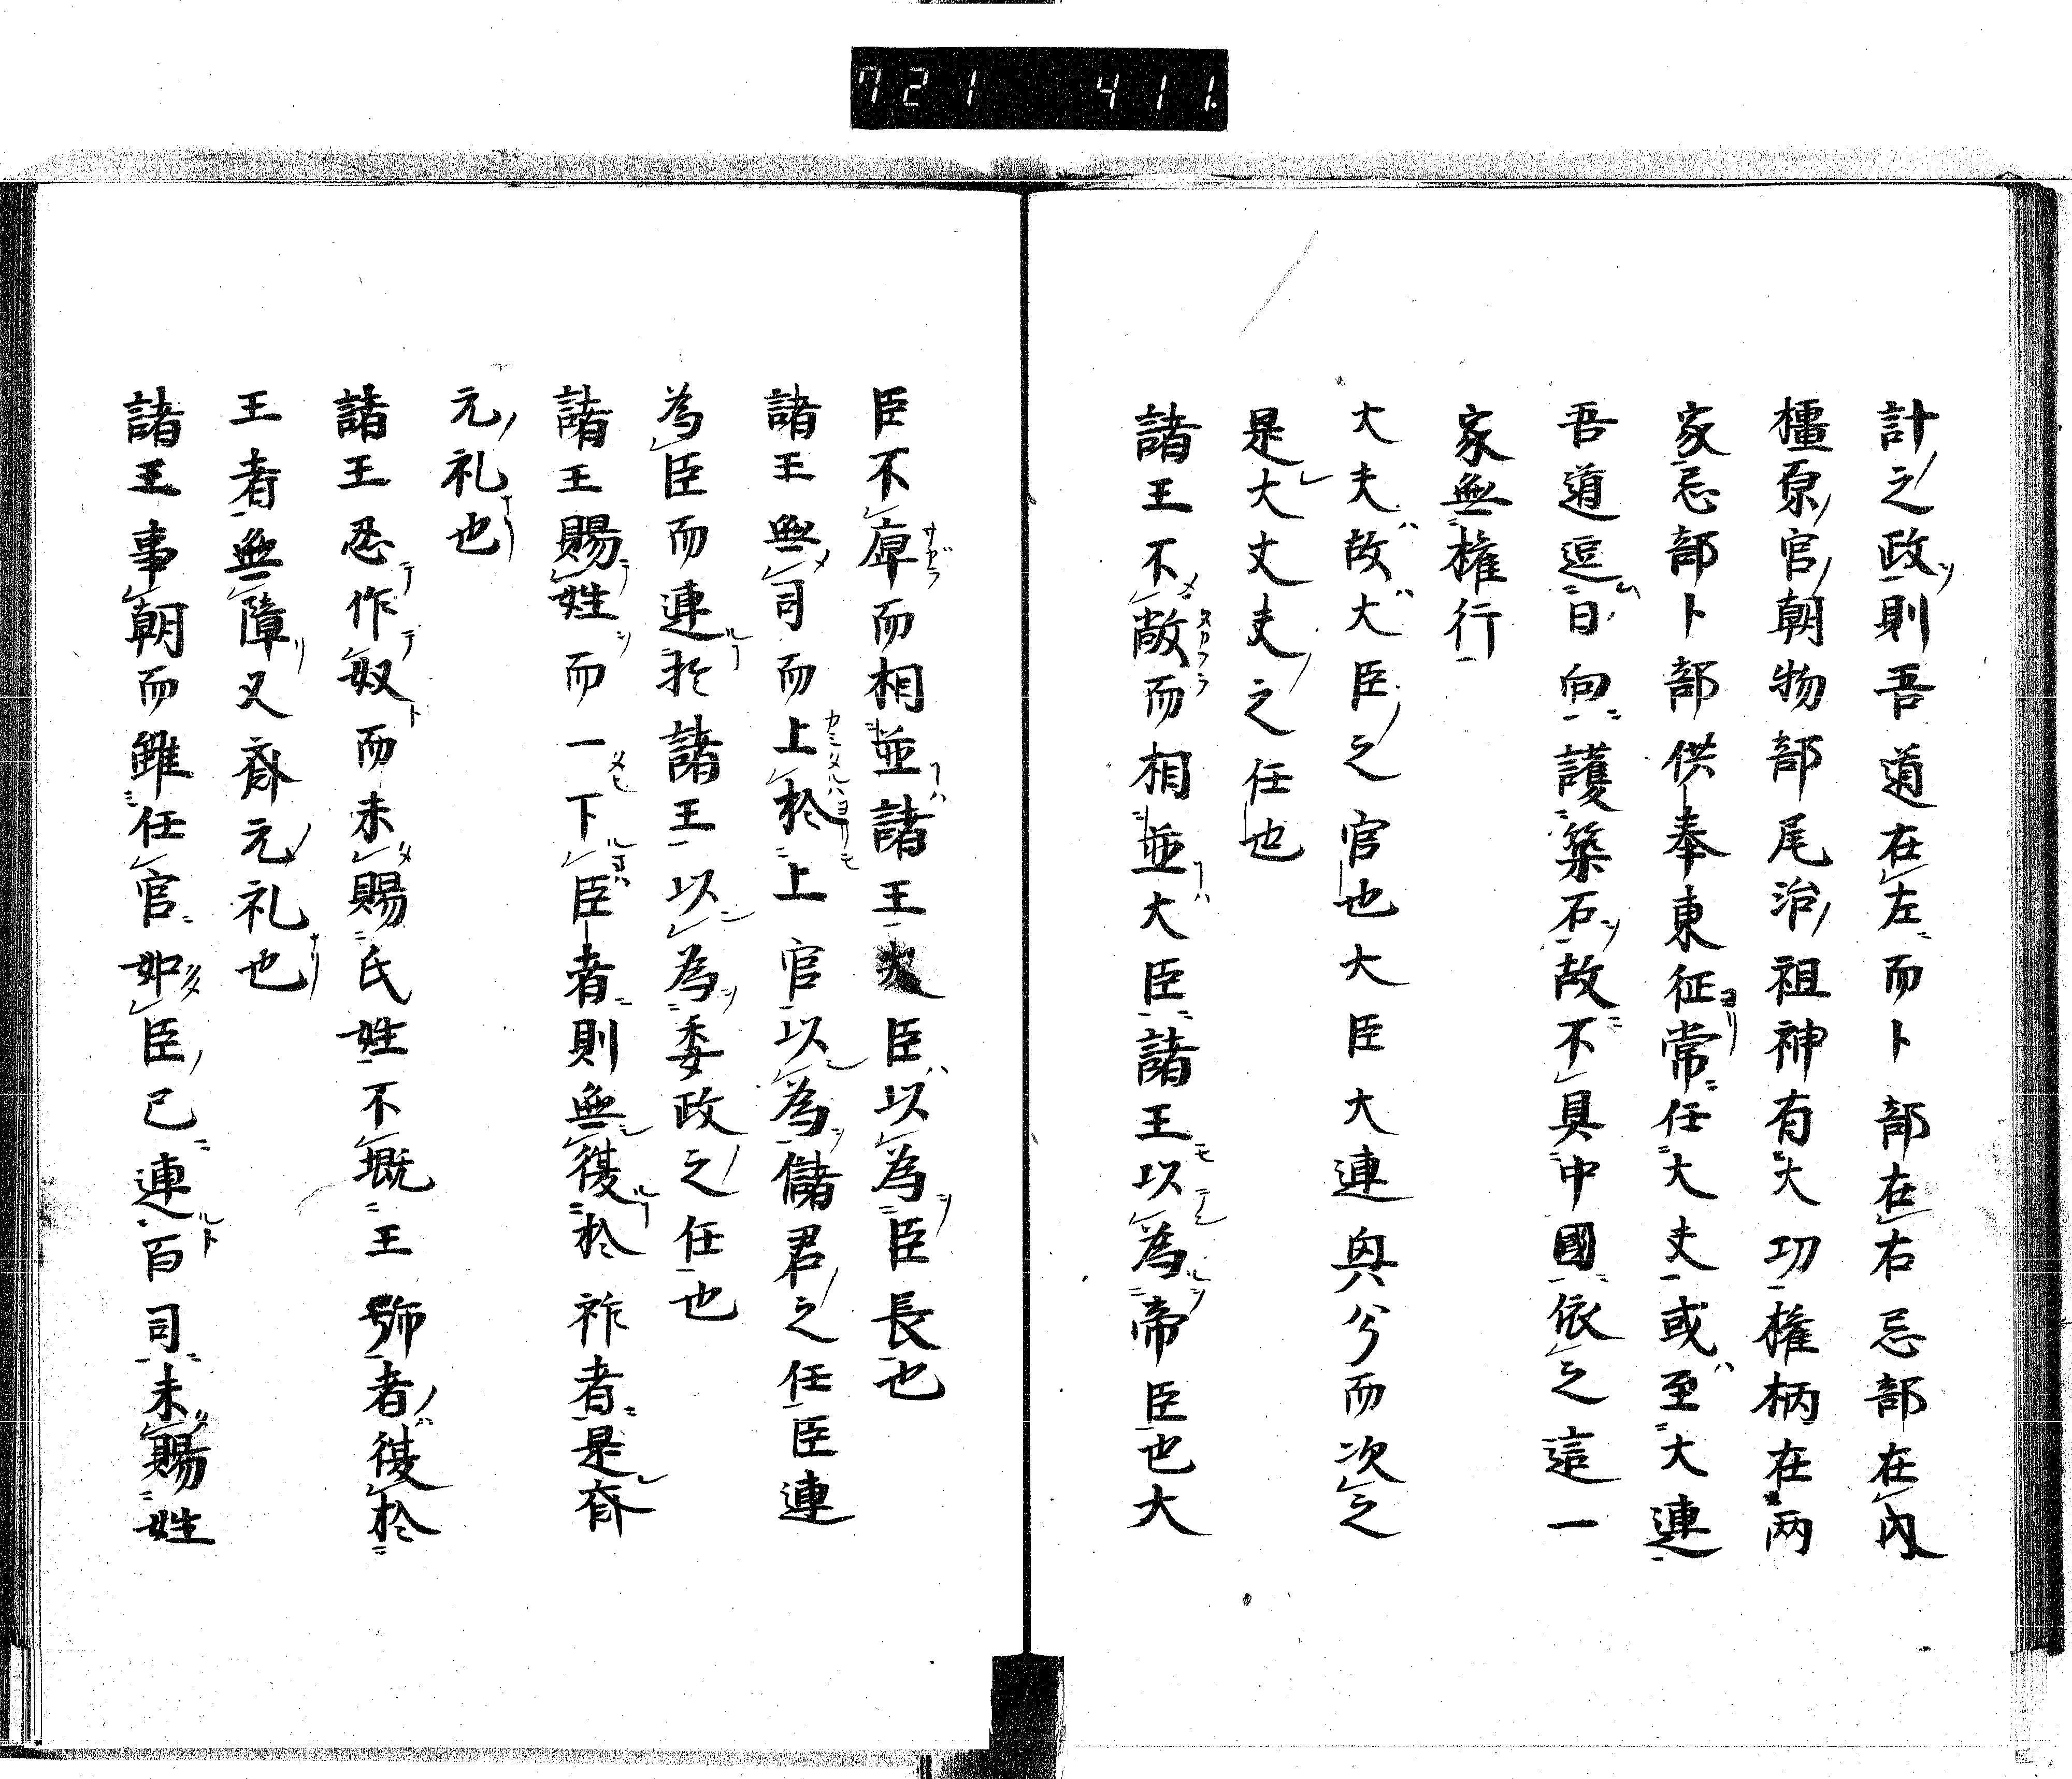 721 411
計之政則吾道在左而卜部在右忌部在内
橿原官朝物部尾治祖神有大功権柄在两
家忌部卜部供奉東征常任大夫或至大連
吾道逗日向護築石故不具中國依之這一
家無権行
大夫故大臣之官也大臣大連與兮而次之
是大丈夫之任也
諸王不敵而相並大臣諸王以為帝臣也大
臣不而相並諸王大臣以為臣長也
諸王無司而上於上官以為儲君之任臣連
為臣而連於諸王以為委政之任也
諸王賜姓而一下臣者則無復於祚者是斎
元礼也
諸王忍作奴而未賜氏姓不概王號者復於
王者無障又斎元礼也
諸王事朝而雖任官如臣已連百司未賜姓